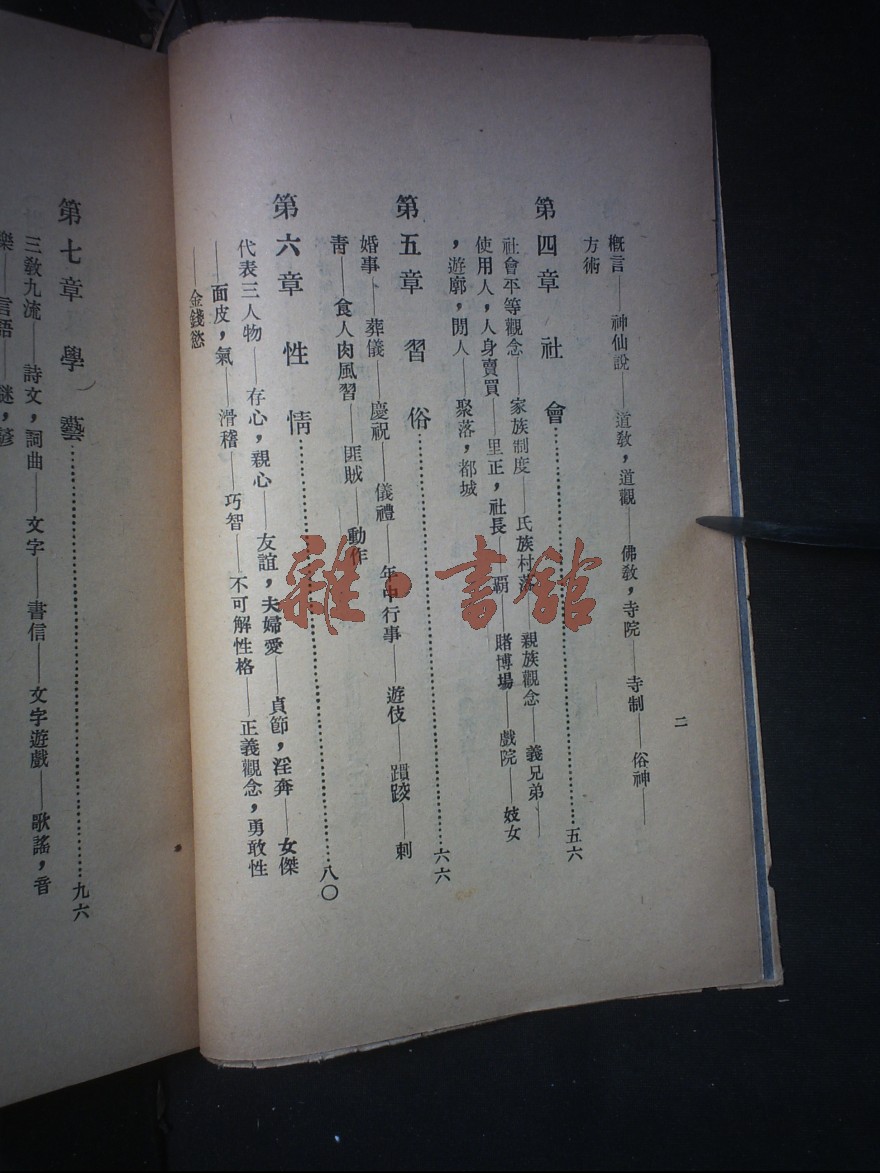 二
概言——神仙說——道教，道觀——佛教，寺院——寺制——俗神——
方術
第四章 社會…………五六
社會平等觀念——家族制度——氏族村落——親族觀念——義兄弟——
使用人，人身賣買——里正，社長——覇——賭博場——戲院——妓女
，遊廓，閒人——聚落，都城
第五章 習俗…………六六
婚事——葬儀——慶祝——儀禮——年中行事——遊伎——蹴踘——刺
靑——食人肉風習——匪賊——動作
第六章 性情…………八〇
代表三人物——存心，親心——友誼，夫婦愛——貞節，淫奔——女傑
——面皮，氣——滑稽——巧智——不可解性格——正義觀念，勇敢性
——金錢慾
第七章 學藝…………九六
三教九流——詩文，詞曲——文字——書信——文字遊戲——歌謠，音
樂——言語——謎，諺
雜·書館